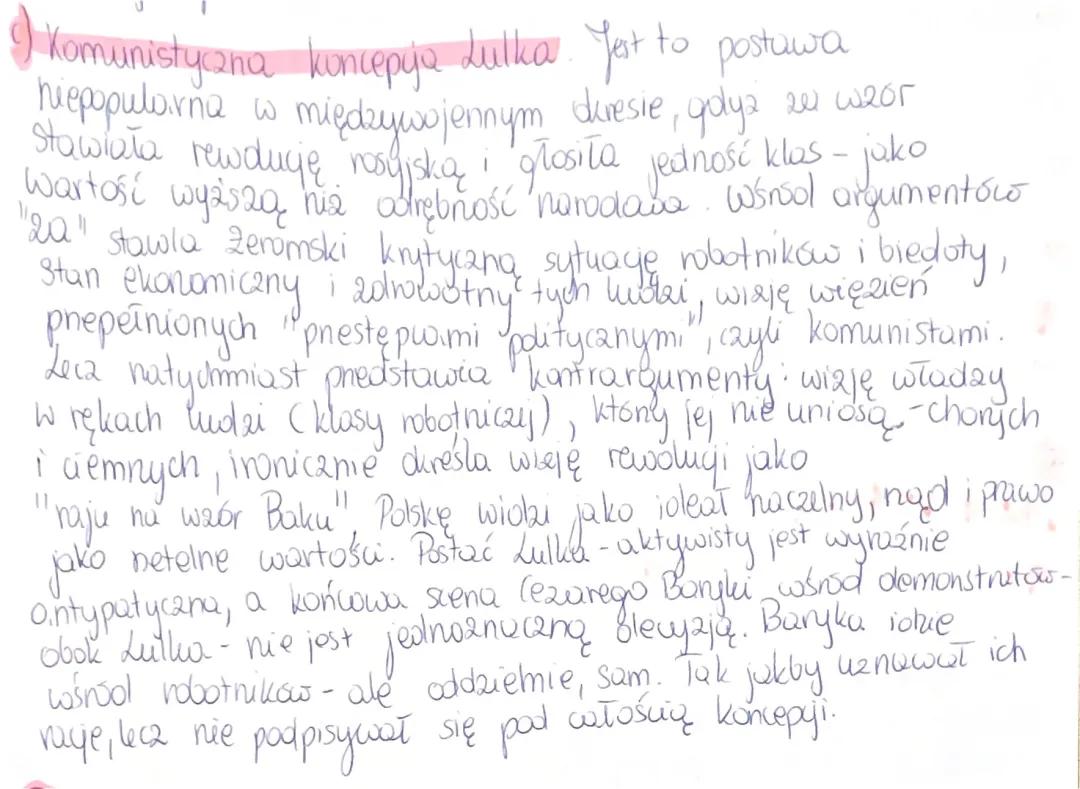 c) Komunistyczna koncepcja Lulka. Jest to postawa
niepopularna w międzywojennym okresie, gdyż za wzór
stawiała rewolucję rosyjską i głosiła jedność klas - jako
wartość wyższą niż odrębność narodowa. Wśród argumentów
"za" stawia Żeromski krytyczną sytuację robotników i biedoty,
stan ekonomiczny i zdrowotny tych ludzi, wizję więzień
przepełnionych "przestępcami politycznymi", czyli komunistami.
Lecz natychmiast przedstawia kontrargumenty: wizję władzy
w rękach ludzi (klasy robotniczej), którzy jej nie uniosą - chorych
i ciemnych, ironicznie określa wizję rewolucji jako
"raju na wzór Baku". Polskę widzi jako ideał naczelny, rząd i prawo
jako rzetelne wartości. Postać Lulka - aktywisty jest wyraźnie
antypatyczna, a końcowa scena Cezarego Baryki wśród demonstratów -
obok Lulka - nie jest jednoznaczną decyzją. Baryka idzie
wśród robotników - ale oddzielnie, sam. Tak jakby uznawał ich
racje, lecz nie podpisywał się pod całością koncepcji.